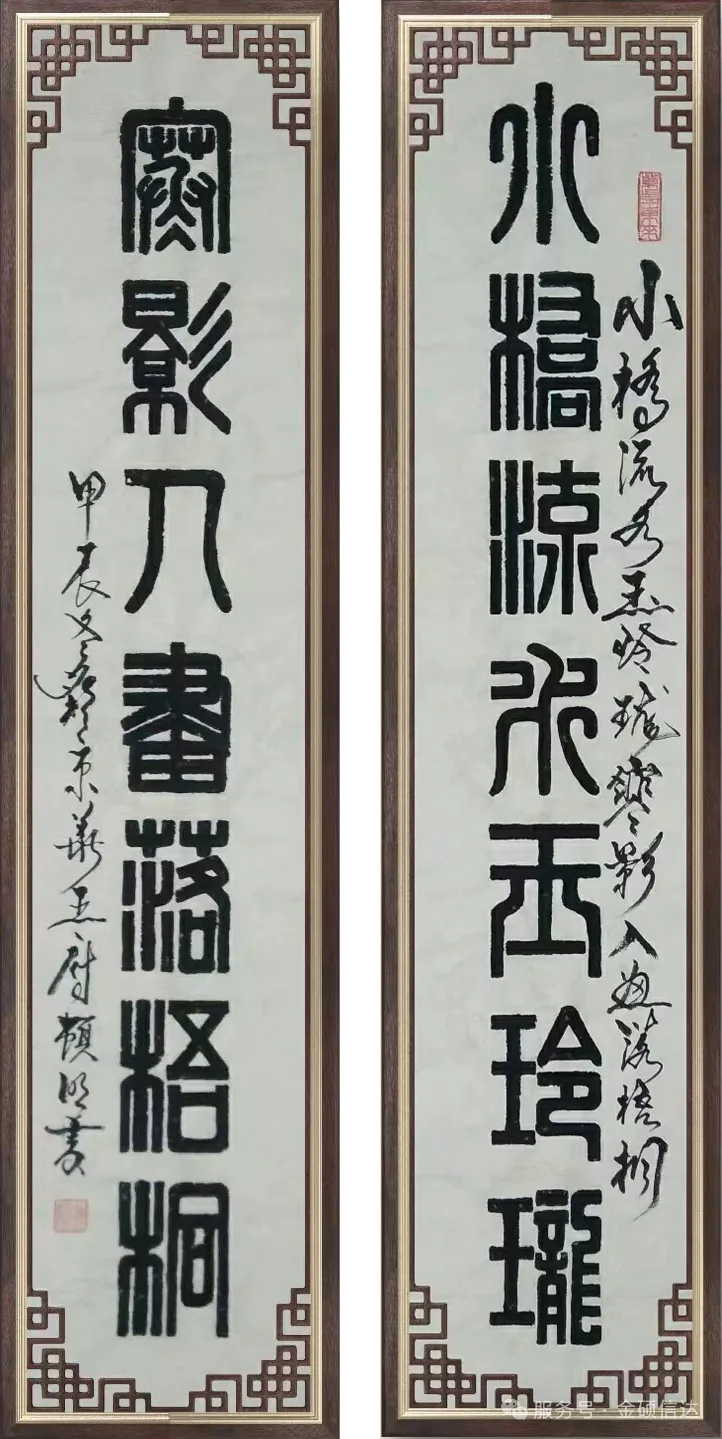 小橋流水玉玲瓏
小橋流水玉玲瓏寒影入畫落梧桐
寒影入畫落梧桐
甲辰冬 京華 頓明書
服务号 · 金硕信达